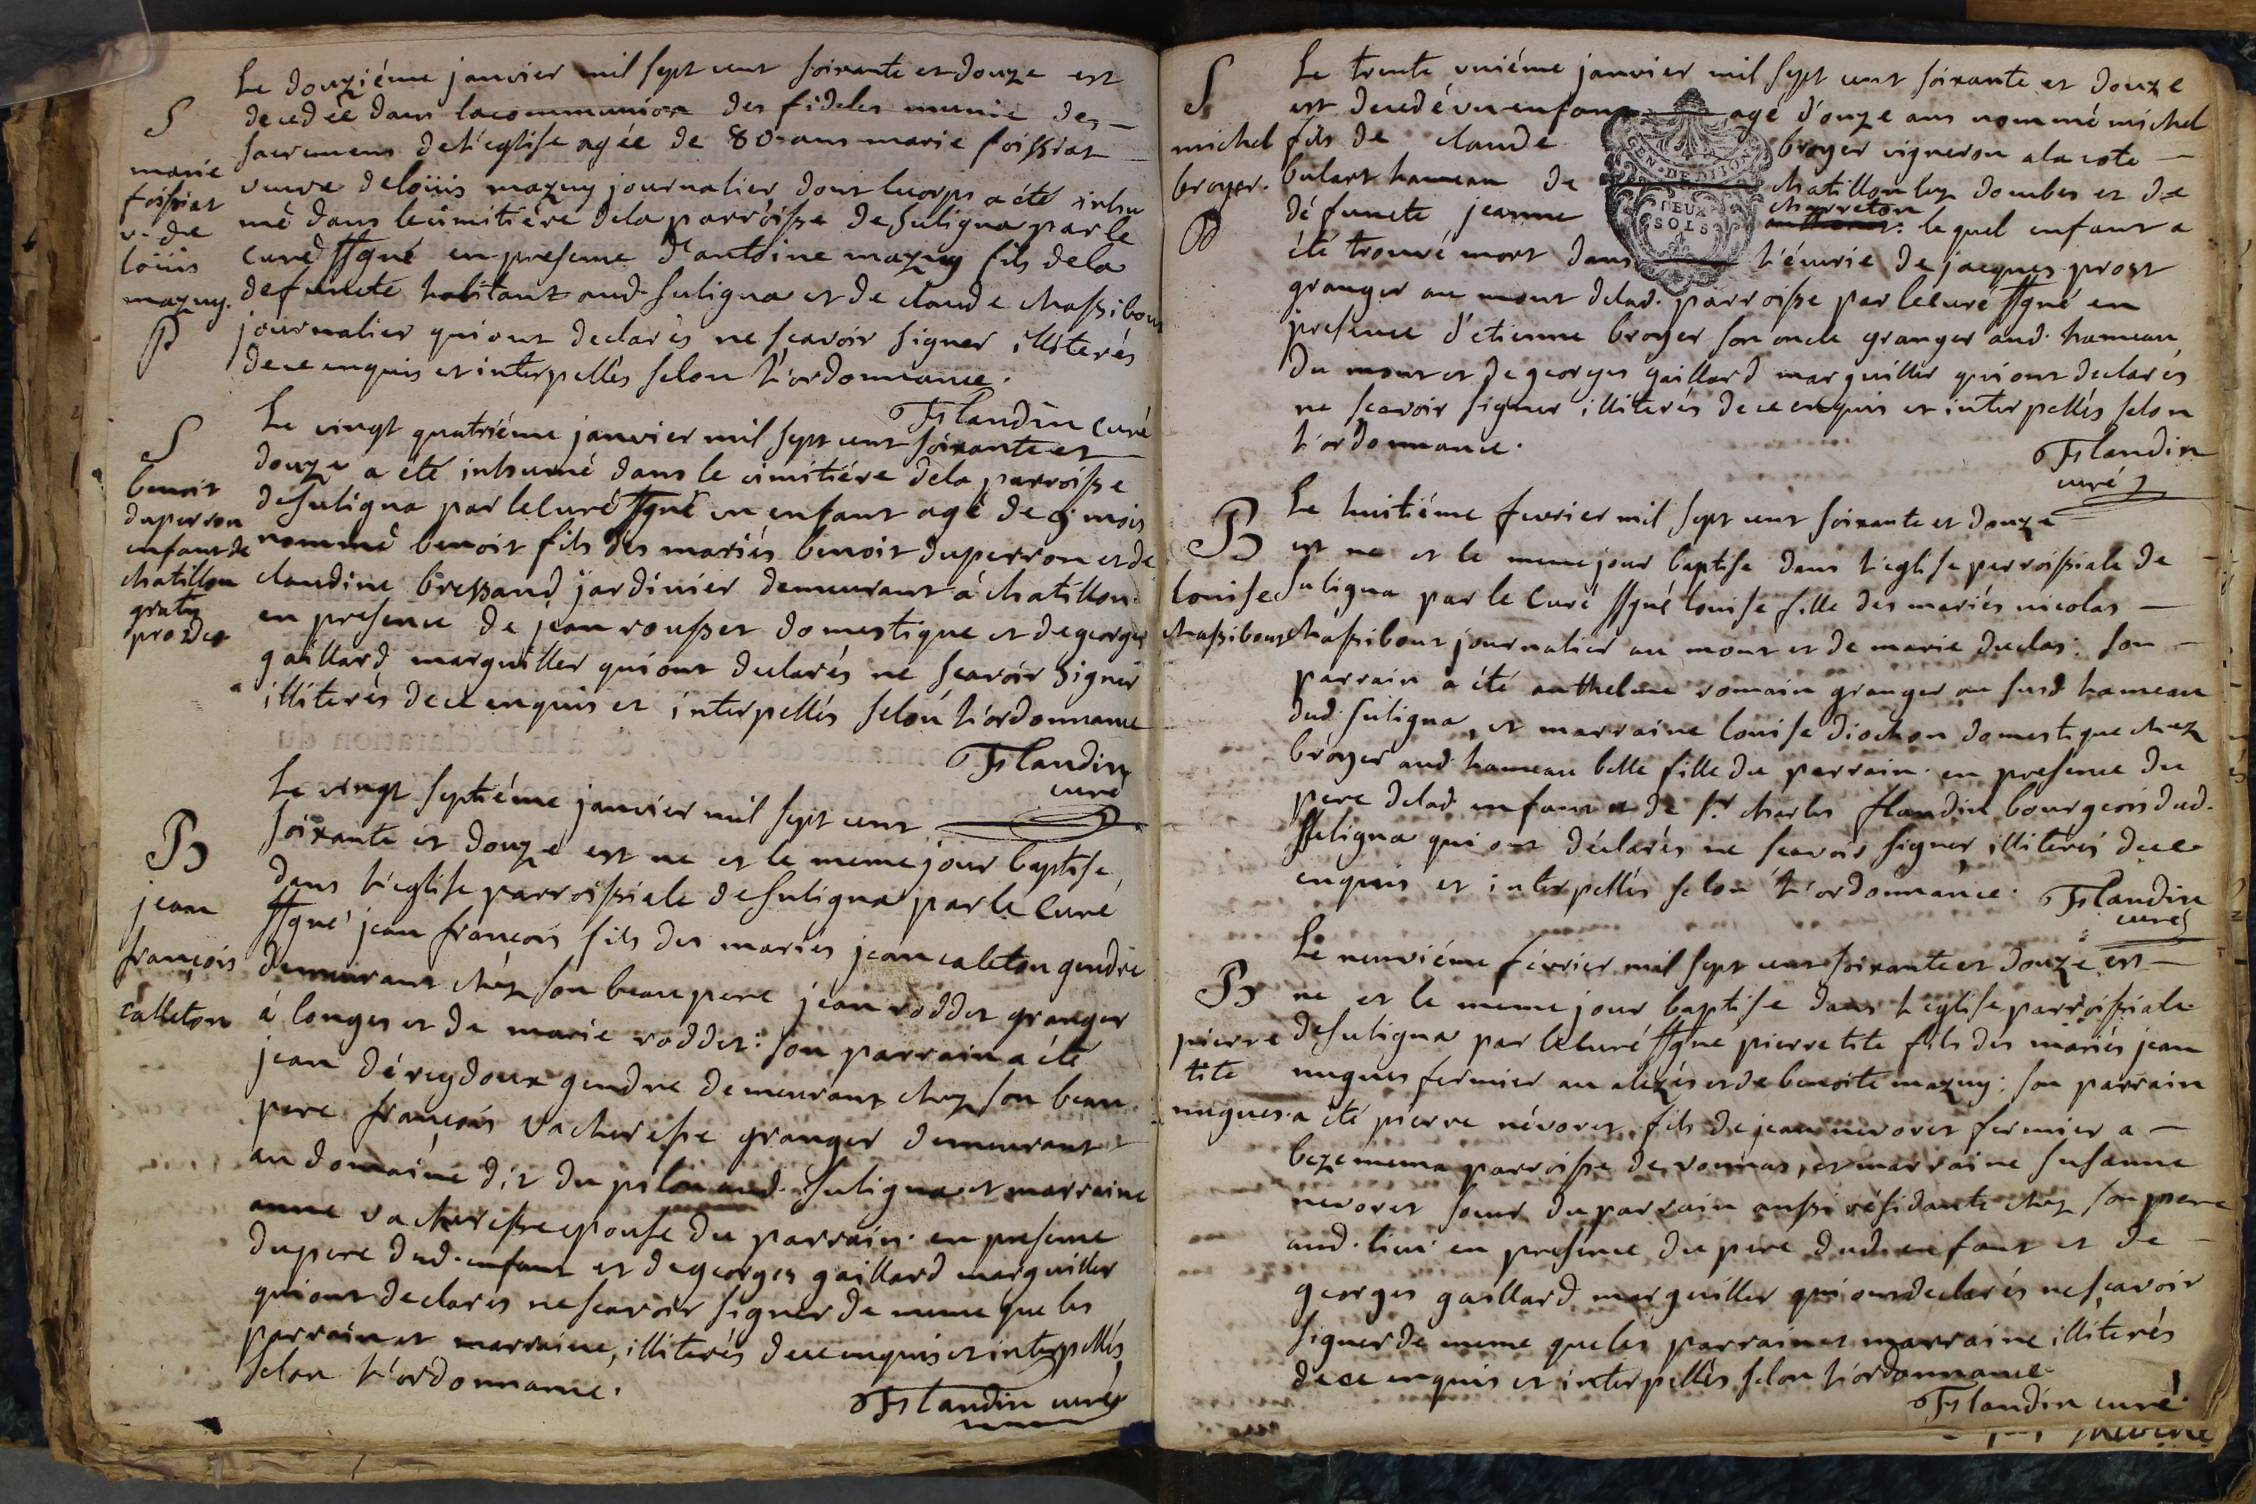 S
marie
foissiat
v. de
loüis
mazuy.
P
Le douziéme janvier mil sept cent soixante et douze est
decedée dans la communion des fideles munie des
sacremens de l'eglise agée de 80 ans marie foissiat
veuve de loüis mazuy journalier dont le corps a été inhu
mé dans le cimitiére de la parroisse de suligna par le
curé ssgné en presence d'antoine mazuy fils de la
defuncte habitant aud. suligna et de claude chassibout
journalier qui ont declarés ne scavoir signer illiterés
de ce enquis et interpellés selon l'ordonnance.
Flandin curé
S
benoit
duperron
enfant de
chatillon
gratis
pro deo
Le vingt quatriéme janvier mil sept cent soixante et
douze a été inhumé dans le cimitiére de la parroisse
de suligna par le curé ssgné un enfant agé de 9 mois
nommé benoit fils des mariés benoit duperron et de
claudine bressand jardinier demeurant á chatillon.
en presence de jean rousset domestique et de georges
gaillard marguiller qui ont declarés ne scavoir signer
illiterés de ce enquis et interpellés selon l'ordonnance
Flandin
curé
B
jean
françois
calleton
Le vingt septiéme janvier mil sept cent
soixante et douze est ne et le meme jour baptise
dans l'eglise parroissiale de suligna par le curé
ssgné jean françois fils des mariés jean caleton gendre
demeurant chez son beau pere jean roddet granger
á longes et de marie roddet: son parrain a été
jean déreydoux gendre demeurant chez son beau
pere françois vacheresse granger demeurant
au domaine dit du pilon aud. suligna et marraine
anne vacheresse epouse du parrain. en presence
du pere dud. enfant et de georges gaillard marguiller
qui ont declarés ne scavoir signer de meme que les
parrain et marraine, illiterés de ce enquis et interpellés
selon l'ordonnance.
Flandin curé
S
michel
broyer.
P
Le trente uniéme janvier mil sept cent soixante et douze
est decedé un enfant agé d'onze ans nommé michel
fils de claude broyer vigneron a la cote
bulart hameau de chatillon les dombes et de
défuncte jeanne charreton lequel enfant a
été trouvé mort dans l'écurie de jacques prost
granger au mont de lad. parroisse par le curé ssgné en
presence d'etienne broyer son oncle granger aud. hameau
du mont et de georges gaillard marguiller qui ont declarés
ne scavoir signer illiterés de ce enquis et interpellés selon
l'ordonnance.
GEN. DE DIJON
DEUX
SOLS
Flandin
curé
B
louise
chassibout
Le huitiéme fevrier mil sept cent soixante et douze
est ne et le meme jour baptise dans l'eglise parroissiale de
suligna par le curé ssgné louise fille des mariés nicolas
chassibout journalier au mont et de marie duclas: son
parrain a été anthelme romain granger au susd. hameau
dud. suligna, et marraine louise diochon domestique chez
bróyer aud. hameau belle fille du parrain. en presence du
pere de lad. enfant et de sr. charles flandin bourgeois dud.
suligna qui ont déclarés ne scavoir signer illitérés de ce
enquis et interpellés selon l'ordonnance.
Flandin
curé
B
pierre
tite
nugues.
Le neuviéme février mil sept cent soixante et douze est
ne et le meme jour baptise dans l'eglise parroissiale
de suligna par le curé ssgné pierre tite fils des mariés jean
nugues fermier au alezés et de benoite mazuy: son parrain
a été pierre névoret fils de jean nevoret fermier a
bezemema parroisse de vonnas, et marraine susanne
nevoret soeur du parrain aussi résidante chez son pere
aud. lieu en presence du pere dud. enfant et de
georges gaillard marguiller qui ont declarés ne scavoir
signer de meme que les parrain et marraine illiterés
de ce enquis et interpellés selon l'ordonnance.
Flandin curé